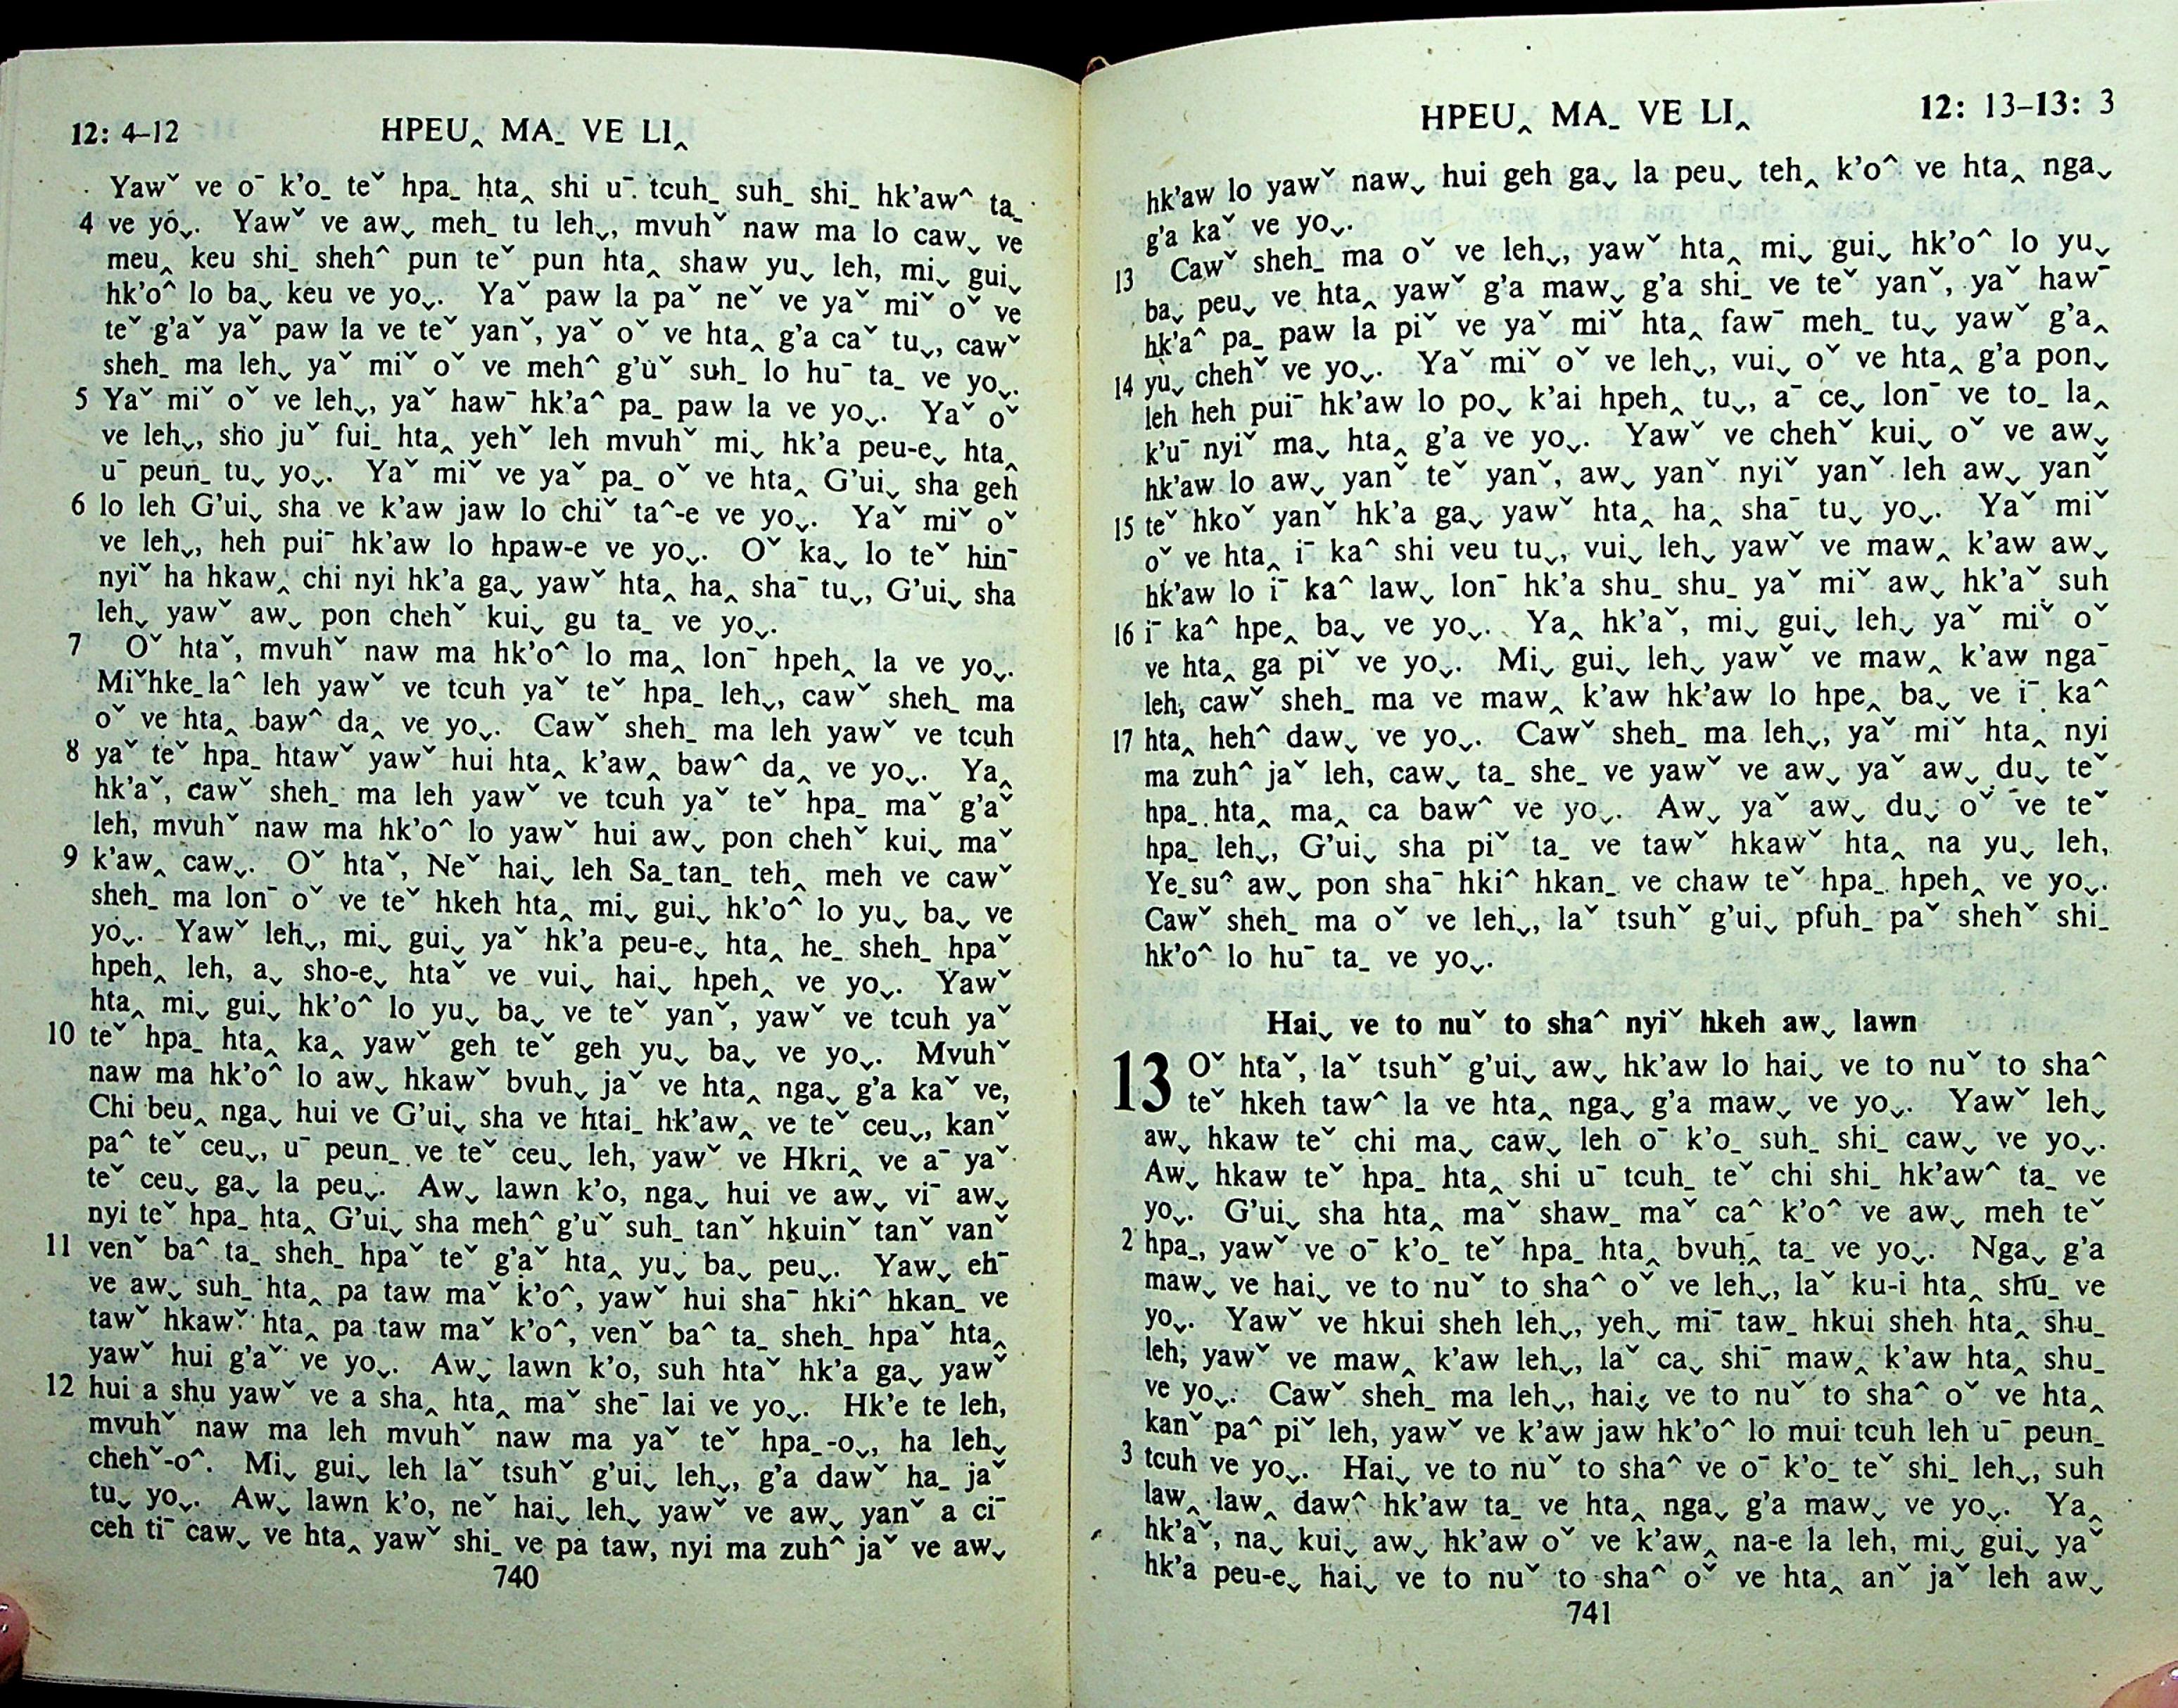 12: 4–12 HPEU‸ MA_ VE LI‸
Yawˇ ve oˉ k’o_ teˇ hpa_ hta‸ shi uˉ tcuh_ suh_ shi_ hk’aw^ ta_
4 ve yoˬ. Yawˇ ve awˬ meh_ tu lehˬ, mvuhˇ naw ma lo cawˬ ve
meu‸ keu shi_ sheh^ pun teˇ pun hta‸ shaw yuˬ leh, miˬ guiˬ
hk’o^ lo baˬ keu ve yoˬ. Yaˇ paw la paˇ neˇ ve yaˇ miˇ oˇ ve
teˇ g’aˇ yaˇ paw la ve teˇ yanˇ, yaˇ oˇ ve hta‸ g’a caˇ tuˬ, cawˇ
sheh_ ma lehˬ yaˇ miˇ oˇ ve meh^ g’uˇ suh_ lo huˉ ta_ ve yoˬ.
5 Yaˇ miˇ oˇ ve lehˬ, yaˇ hawˉ hk’a^ pa_ paw la ve yoˬ. Yaˇ oˇ
ve lehˬ, sho juˇ fui_ hta‸ yehˇ leh mvuhˇ miˬ hk’a peu-eˬ hta‸
uˉ peun_ tuˬ yoˬ. Yaˇ miˇ ve yaˇ pa_ oˇ ve hta‸ G’uiˬ sha geh
6 lo leh G’uiˬ sha ve k’aw jaw lo chiˇ ta^-e ve yoˬ. Yaˇ miˇ oˇ
ve lehˬ, heh puiˉ hk’aw lo hpaw-e ve yoˬ. Oˇ kaˬ lo teˇ hinˉ
nyiˇ ha hkaw‸ chi nyi hk’a gaˬ yawˇ hta‸ ha‸ shaˉ tuˬ, G’uiˬ sha
lehˬ yawˇ awˬ pon chehˇ kuiˬ gu ta_ ve yoˬ.
7 Oˇ htaˇ, mvuhˇ naw ma hk’o^ lo ma‸ lonˉ hpeh‸ la ve yoˬ.
Miˇhke_la^ leh yawˇ ve tcuh yaˇ teˇ hpa_ lehˬ, cawˇ sheh_ ma
oˇ ve hta‸ baw^ da‸ ve yoˬ. Cawˇ sheh_ ma leh yawˇ ve tcuh
8 yaˇ teˇ hpa_ htawˇ yawˇ hui hta‸ k’aw‸ baw^ da‸ ve yoˬ. Ya‸
hk’aˇ, cawˇ sheh_ ma leh yawˇ ve tcuh yaˇ teˇ hpa_ maˇ g’aˇ
leh, mvuhˇ naw ma hk’o^ lo yawˇ hui awˬ pon chehˇ kuiˬ maˇ
9 k’aw‸ cawˬ. Oˇ htaˇ, Neˇ haiˬ leh Sa_tan_ teh‸ meh ve cawˇ
sheh_ ma lonˉ oˇ ve teˇ hkeh hta‸ miˬ guiˬ hk’o^ lo yuˬ baˬ ve
yoˬ. Yawˇ lehˬ, miˬ guiˬ yaˇ hk’a peu-eˬ hta‸ he_ sheh_ hpaˇ
hpeh‸ leh, aˬ sho-eˬ htaˇ ve vuiˬ haiˬ hpeh‸ ve yoˬ. Yawˇ
hta‸ miˬ guiˬ hk’o^ lo yuˬ baˬ ve teˇ yanˇ, yawˇ ve tcuh yaˇ
10 teˇ hpa_ hta‸ ka‸ yawˇ geh teˇ geh yuˬ baˬ ve yoˬ. Mvuhˇ
naw ma hk’o^ lo awˬ hkawˇ bvuhˬ jaˇ ve hta‸ ngaˬ g’a kaˇ ve,
Chi beu‸ ngaˬ hui ve G’uiˬ sha ve htai_ hk’aw‸ ve teˇ ceuˬ, kanˇ
pa^ teˇ ceuˬ, uˉ peun_ ve teˇ ceuˬ leh, yawˇ ve Hkri‸ ve aˉ yaˇ
teˇ ceuˬ gaˬ la peuˬ. Awˬ lawn k’o, ngaˬ hui ve awˬ viˉ awˬ
nyi teˇ hpa_ hta‸ G’uiˬ sha meh^ g’uˇ suh_ tanˇ hkuinˇ tanˇ vanˇ
11 venˇ ba^ ta_ sheh_ hpaˇ teˇ g’aˇ hta‸ yuˬ baˬ peuˬ. Yawˬ ehˉ
ve awˬ suh_ hta‸ pa taw maˇ k’o^, yawˇ hui shaˉ hki^ hkan_ ve
tawˇ hkawˇ hta‸ pa taw maˇ k’o^, venˇ ba^ ta_ sheh_ hpaˇ hta‸
yawˇ hui g’aˇ ve yoˬ. Awˬ lawn k’o, suh htaˇ hk’a gaˬ yawˇ
12 hui a shu yawˇ ve a sha‸ hta‸ maˇ sheˉ lai ve yoˬ. Hk’e te leh,
mvuhˇ naw ma leh mvuhˇ naw ma yaˇ teˇ hpa_-oˬ, ha lehˬ
chehˇ-o^. Miˬ guiˬ leh laˇ tsuhˇ g’uiˬ lehˬ, g’a dawˇ ha_ jaˇ
tuˬ yoˬ. Awˬ lawn k’o, neˇ haiˬ lehˬ yawˇ ve awˬ yanˇ a ciˉ
ceh tiˉ cawˬ ve hta‸ yawˇ shi_ ve pa taw, nyi ma zuh^ jaˇ ve awˬ
740
HPEU‸ MA_ VE LI‸ 12: 13–13: 3
hk’aw lo yawˇ nawˬ hui geh gaˬ la peuˬ teh‸ k’o^ ve hta‸ ngaˬ
g’a kaˇ ve yoˬ.
13 Cawˇ sheh_ ma oˇ ve lehˬ, yawˇ hta‸ miˬ guiˬ hk’o^ lo yuˬ
baˬ peuˬ ve hta‸ yawˇ g’a mawˬ g’a shi_ ve teˇ yanˇ, yaˇ hawˉ
hk’a^ pa_ paw la piˇ ve yaˇ miˇ hta‸ fawˉ meh_ tuˬ yawˇ g’a‸
14 yuˬ chehˇ ve yoˬ. Yaˇ miˇ oˇ ve lehˬ, vuiˬ oˇ ve hta‸ g’a ponˬ
leh heh puiˉ hk’aw lo poˬ k’ai hpeh‸ tuˬ, aˉ ceˬ lonˉ ve to_ la‸
k’uˉ nyiˇ maˬ hta‸ g’a ve yoˬ. Yawˇ ve chehˇ kuiˬ oˇ ve awˬ
hk’aw lo awˬ yanˇ teˇ yanˇ, awˬ yanˇ nyiˇ yanˇ leh awˬ yanˇ
15 teˇ hkoˇ yanˇ hk’a gaˬ yawˇ hta‸ ha‸ shaˉ tuˬ yoˬ. Yaˇ miˇ
oˇ ve hta‸ iˉ ka^ shi veu tuˬ, vuiˬ lehˬ yawˇ ve maw‸ k’aw awˬ
hk’aw lo iˉ ka^ lawˬ lonˉ hk’a shu_ shu_ yaˇ miˇ awˬ hk’aˇ suh
16 iˉ ka^ hpe‸ baˬ ve yoˬ. Ya‸ hk’aˇ, miˬ guiˬ lehˬ yaˇ miˇ oˇ
ve hta‸ ga piˇ ve yoˬ. Miˬ guiˬ lehˬ yawˇ ve maw‸ k’aw ngaˉ
leh, cawˇ sheh_ ma ve maw‸ k’aw hk’aw lo hpe‸ baˬ ve iˉ ka^
17 hta‸ heh^ dawˬ ve yoˬ. Cawˇ sheh_ ma lehˬ, yaˇ miˇ hta‸ nyi
ma zuh^ jaˇ leh, cawˬ ta_ she_ ve yawˇ ve awˬ yaˇ awˬ duˬ teˇ
hpa_ hta‸ ma‸ ca baw^ ve yoˬ. Awˬ yaˇ awˬ duˬ oˇ ve teˇ
hpa_ lehˬ, G’uiˬ sha piˇ ta_ ve tawˇ hkawˇ hta‸ na yuˬ leh,
Ye_su^ awˬ pon shaˉ hki^ hkan_ ve chaw teˇ hpa_ hpeh‸ ve yoˬ.
Cawˇ sheh_ ma oˇ ve lehˬ, laˇ tsuhˇ g’uiˬ pfuh_ paˇ shehˇ shi_
hk’o^ lo huˉ ta_ ve yoˬ.
Haiˬ ve to nuˇ to sha^ nyiˇ hkeh awˬ lawn
13 Oˇ htaˇ, laˇ tsuhˇ g’uiˬ awˬ hk’aw lo haiˬ ve to nuˇ to sha^
teˇ hkeh taw^ la ve hta‸ ngaˬ g’a mawˬ ve yoˬ. Yawˇ lehˬ
awˬ hkaw teˇ chi maˬ cawˬ leh oˉ k’o_ suh_ shi_ cawˬ ve yoˬ.
Awˬ hkaw teˇ hpa_ hta‸ shi uˉ tcuh_ teˇ chi shi_ hk’aw^ ta_ ve
yoˬ. G’uiˬ sha hta‸ maˇ shaw_ maˇ ca^ k’o^ ve awˬ meh teˇ
2 hpa_, yawˇ ve oˉ k’o_ teˇ hpa_ hta‸ bvuh‸ ta_ ve yoˬ. Ngaˬ g’a
mawˬ ve haiˬ ve to nuˇ to sha^ oˇ ve lehˬ, laˇ ku-i hta‸ shu_ ve
yoˬ. Yawˇ ve hkui sheh lehˬ, yehˬ miˉ taw_ hkui sheh hta‸ shu_
leh, yawˇ ve maw‸ k’aw lehˬ, laˇ caˬ shiˉ maw‸ k’aw hta‸ shu_
ve yoˬ. Cawˇ sheh_ ma lehˬ, haiˬ ve to nuˇ to sha^ oˇ ve hta‸
kanˇ pa^ piˇ leh, yawˇ ve k’aw jaw hk’o^ lo mui tcuh leh uˉ peun_
3 tcuh ve yoˬ. Haiˬ ve to nuˇ to sha^ ve oˉ k’o_ teˇ shi_ lehˬ, suh
law‸ law‸ daw^ hk’aw ta_ ve hta‸ ngaˬ g’a mawˬ ve yoˬ. Ya‸
hk’aˇ, naˬ kuiˬ awˬ hk’aw oˇ ve k’aw‸ na-e la leh, miˬ guiˬ yaˇ
hk’a peu-eˬ haiˬ ve to nuˇ to sha^ oˇ ve hta‸ anˇ jaˇ leh awˬ
741